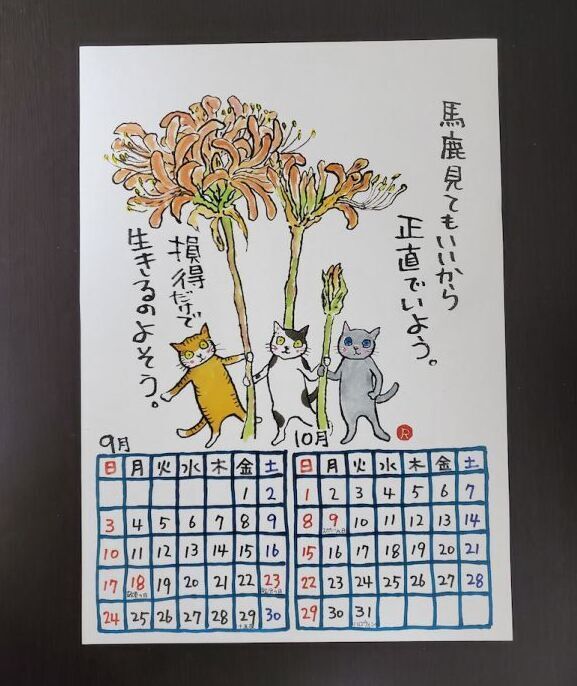 馬鹿見てもいいから
正直でいよう。
損得だけで
生きるのよそう。
R
9月
日 月 火 水 木 金 土
1 2
3 4 5 6 7 8 9
10 11 12 13 14 15 16
17 18 19 20 21 22 23
敬老の日
24 25 26 27 28 29 30
十五夜
10月
日 月 火 水 木 金 土
1 2 3 4 5 6 7
8 9 10 11 12 13 14
スポーツの日
15 16 17 18 19 20 21
22 23 24 25 26 27 28
29 30 31
ハロウィン